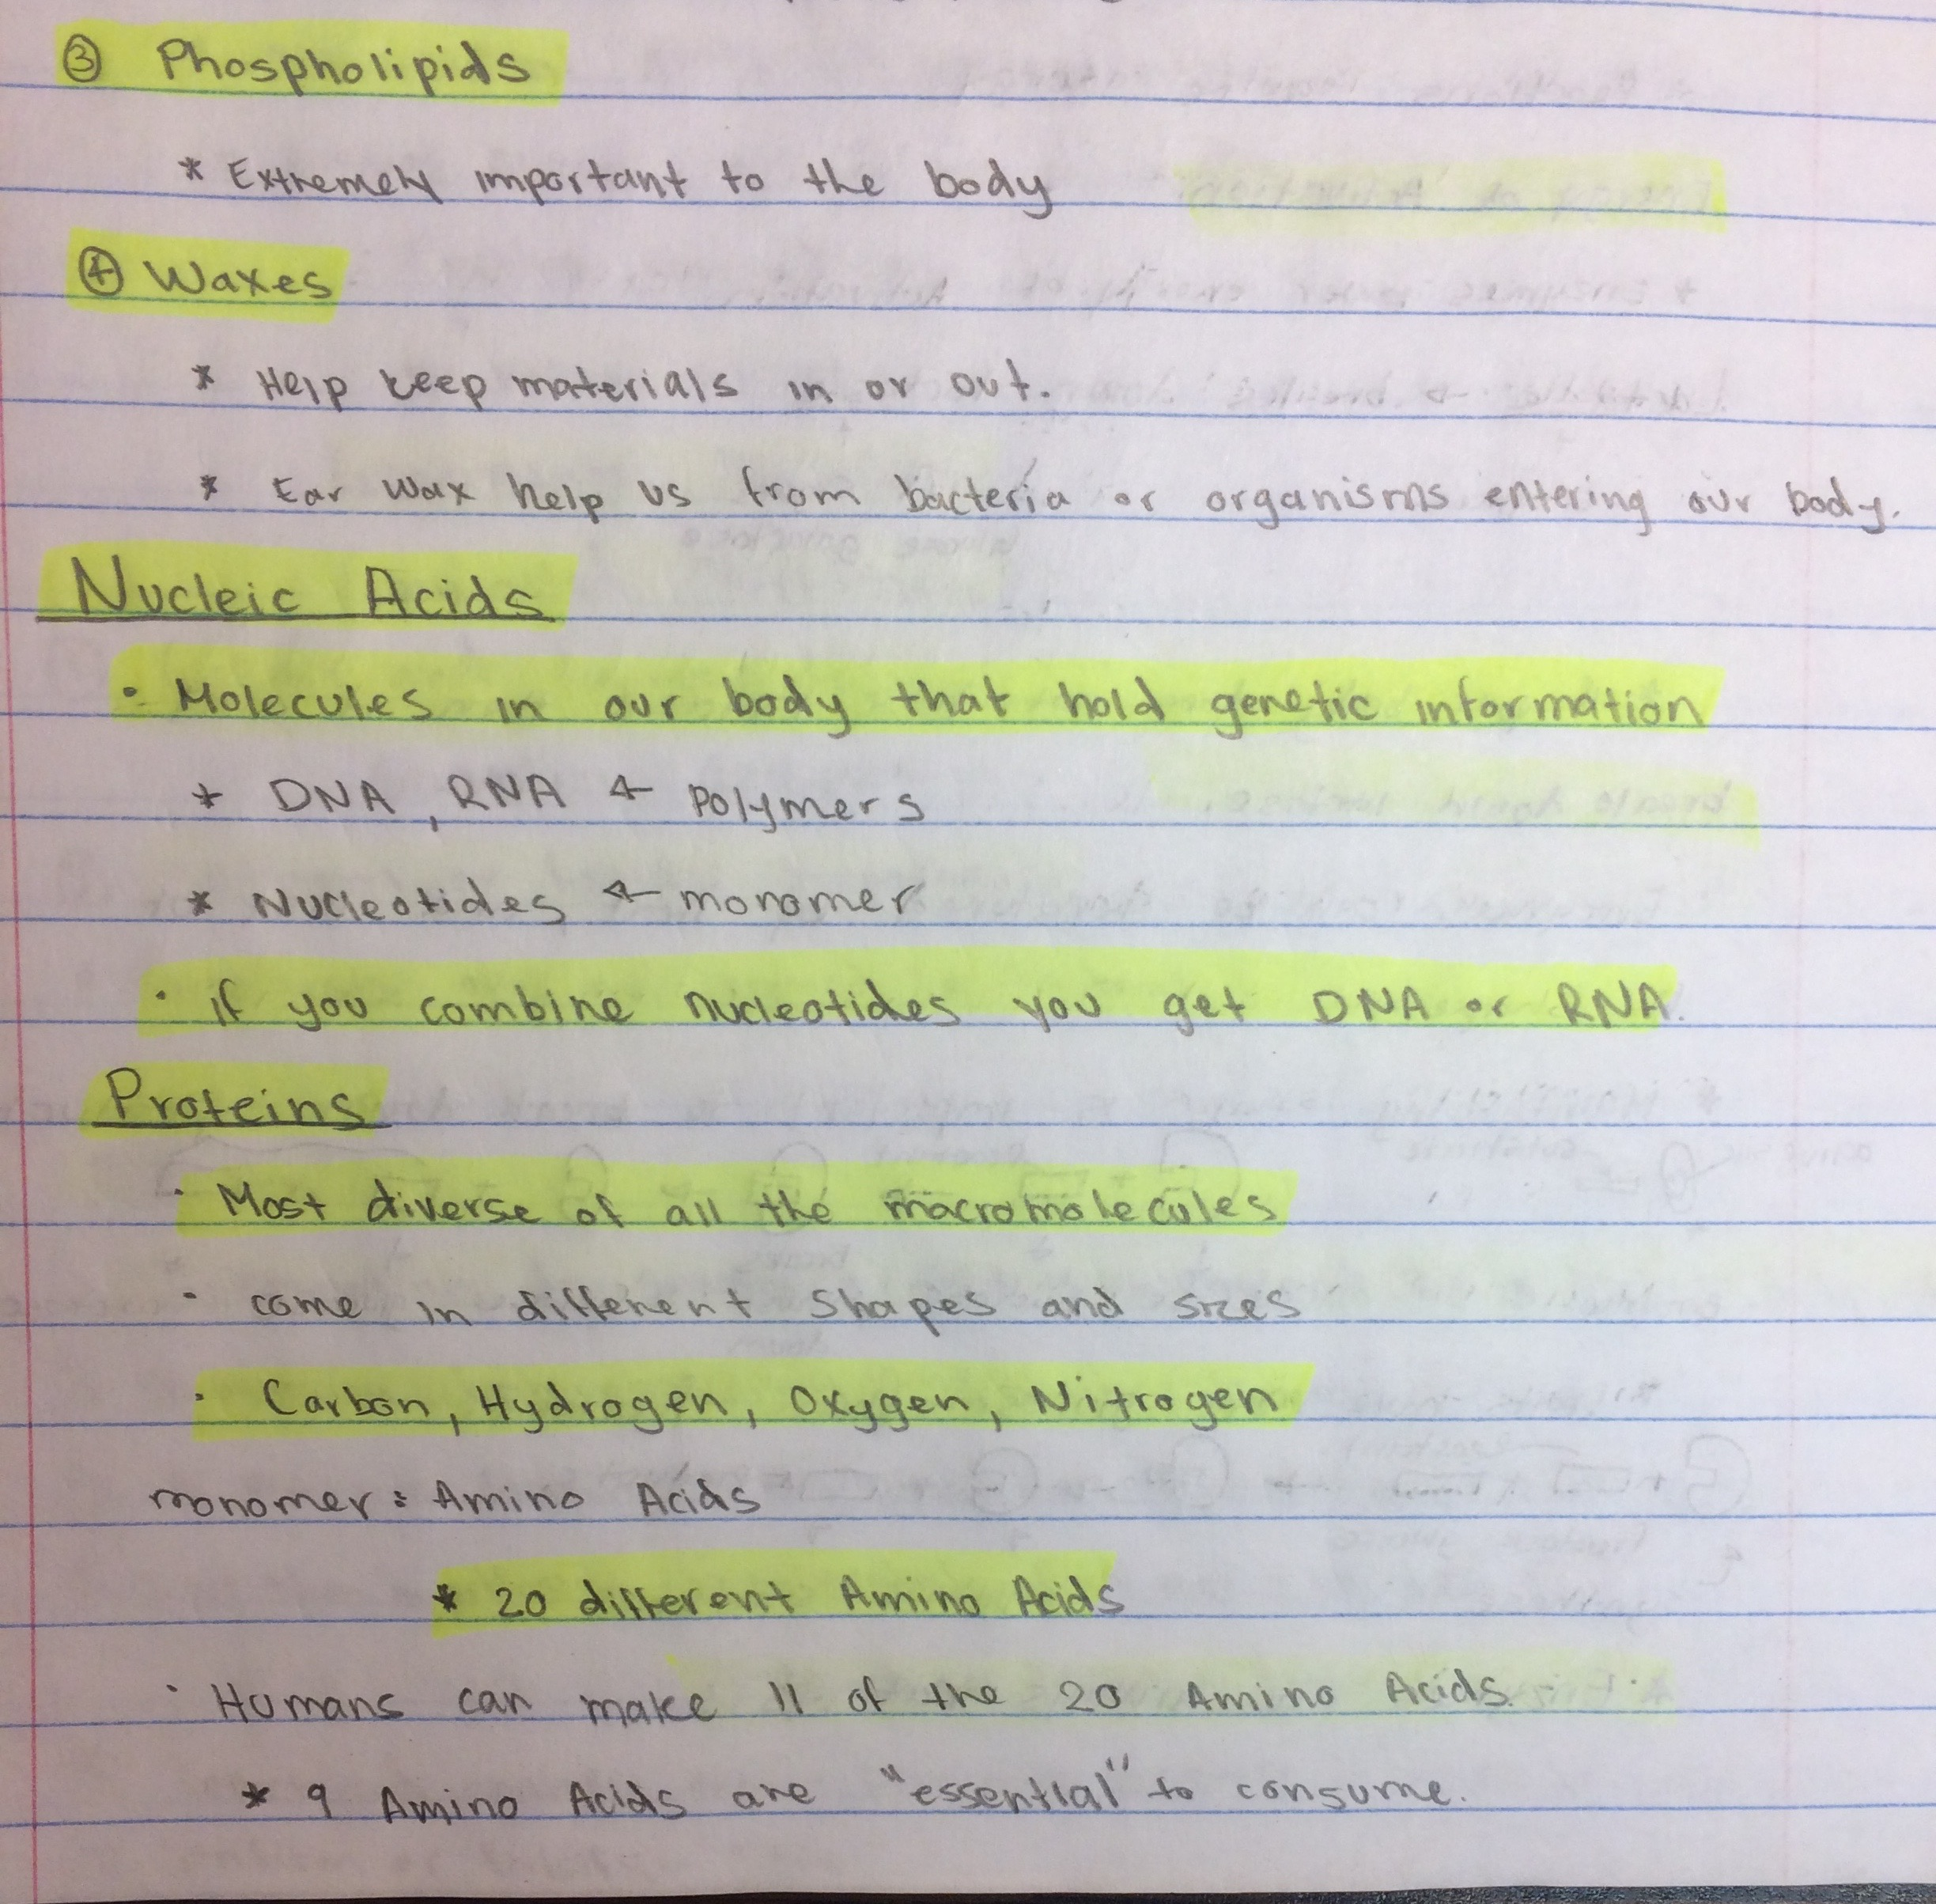 ③ Phospholipids
* Extremely important to the body
④ Waxes
* Help keep materials in or out.
* Ear wax help us from bacteria or organisms entering our body.
Nucleic Acids
• Molecules in our body that hold genetic information
* DNA, RNA ← polymers
* Nucleotides ← monomer
• if you combine nucleotides you get DNA or RNA.
Proteins
• Most diverse of all the macromolecules
• come in different shapes and sizes
• Carbon, Hydrogen, Oxygen, Nitrogen
monomer: Amino Acids
* 20 different Amino Acids
• Humans can make 11 of the 20 Amino Acids.
* 9 Amino Acids are "essential" to consume.